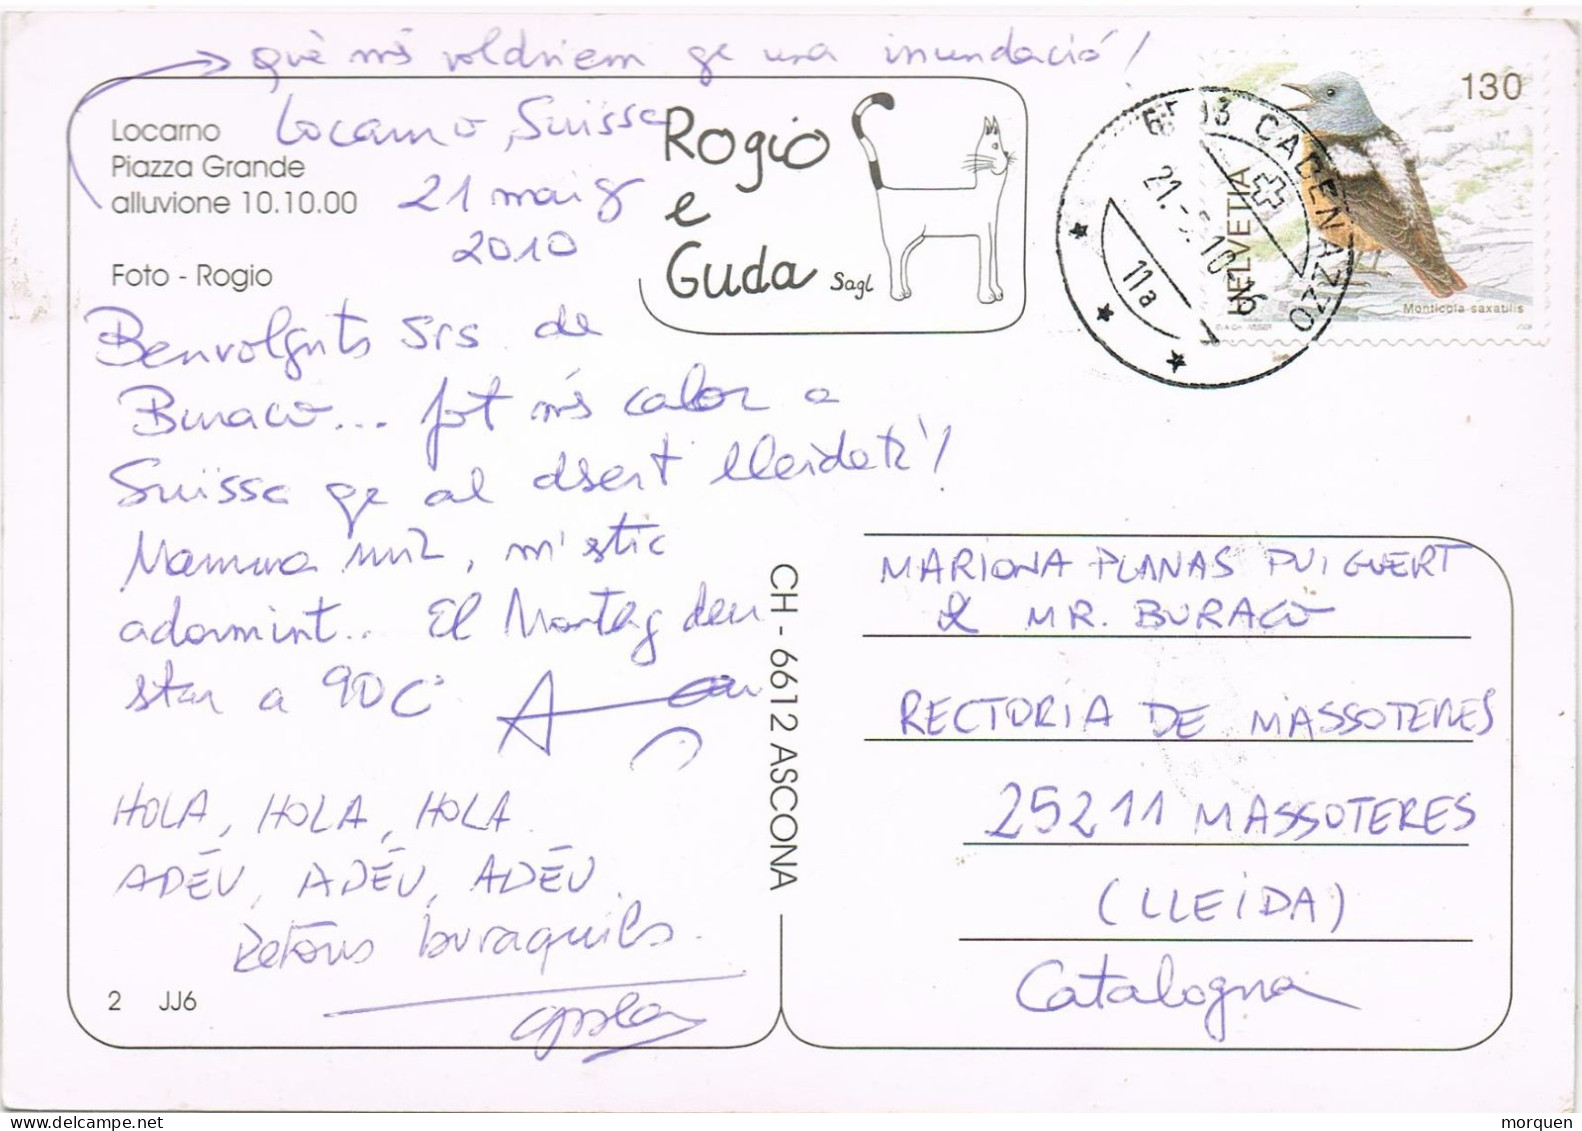 què més voldriem qe una inundació!
Locarno
Piazza Grande
alluvione 10.10.00
Foto - Rogio
Locarno, Suïssa
21 maig
2010
Rogio
e
Guda Sagl
130
HELVETIA
Monticola saxatilis
6593 CADENAZZO
11a
Benvolguts srs. de
Buraco... fot més calor a
Suïssa qe al desert lleidetà!
Mamma mia, m'estic
adormint... El Montag deu
star a 90C°
HOLA, HOLA, HOLA.
ADÉU, ADÉU, ADÉU.
Petons buraquils.
2 JJ6
CH - 6612 ASCONA
MARIONA PLANAS PUIGVERT
& MR. BURACO
RECTORIA DE MASSOTERES
25211 MASSOTERES
(LLEIDA)
Catalogna
morquen